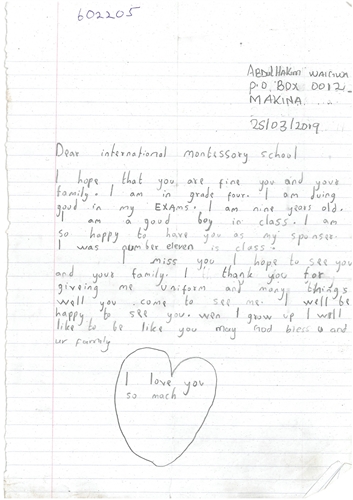 602205
Abdul Hakim
P.O. BOX 0012
MAKINA.
25/03/2019
Dear international montessory school
I hope that you are fine you and your
family. I am in grade four. I am doing
good in my EXAMS. I am nine years old.
I am a good boy in class. I am
so happy to have you as my sponser.
I was number eleven is class.
I miss you I hope to see you
and your family. I thank you for
giveing me uniform and many things
well you come to see me. I well be
happy to see you. wen I grow up I well
like to be like you may God bless u and
ur family
I love you
so mach